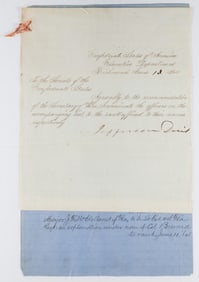 Confederate States of America
Executive Department
Richmond June 13, 186
To the Senate of the
Confederate States
Agreeably to the recommendation
of the Secretary of War, I nominate the officers on the
accompanying list to the rank affixed to their names
respectively.
Jefferson Davis
Major J. R.
explanation under nom of Col
rank June 10, 64